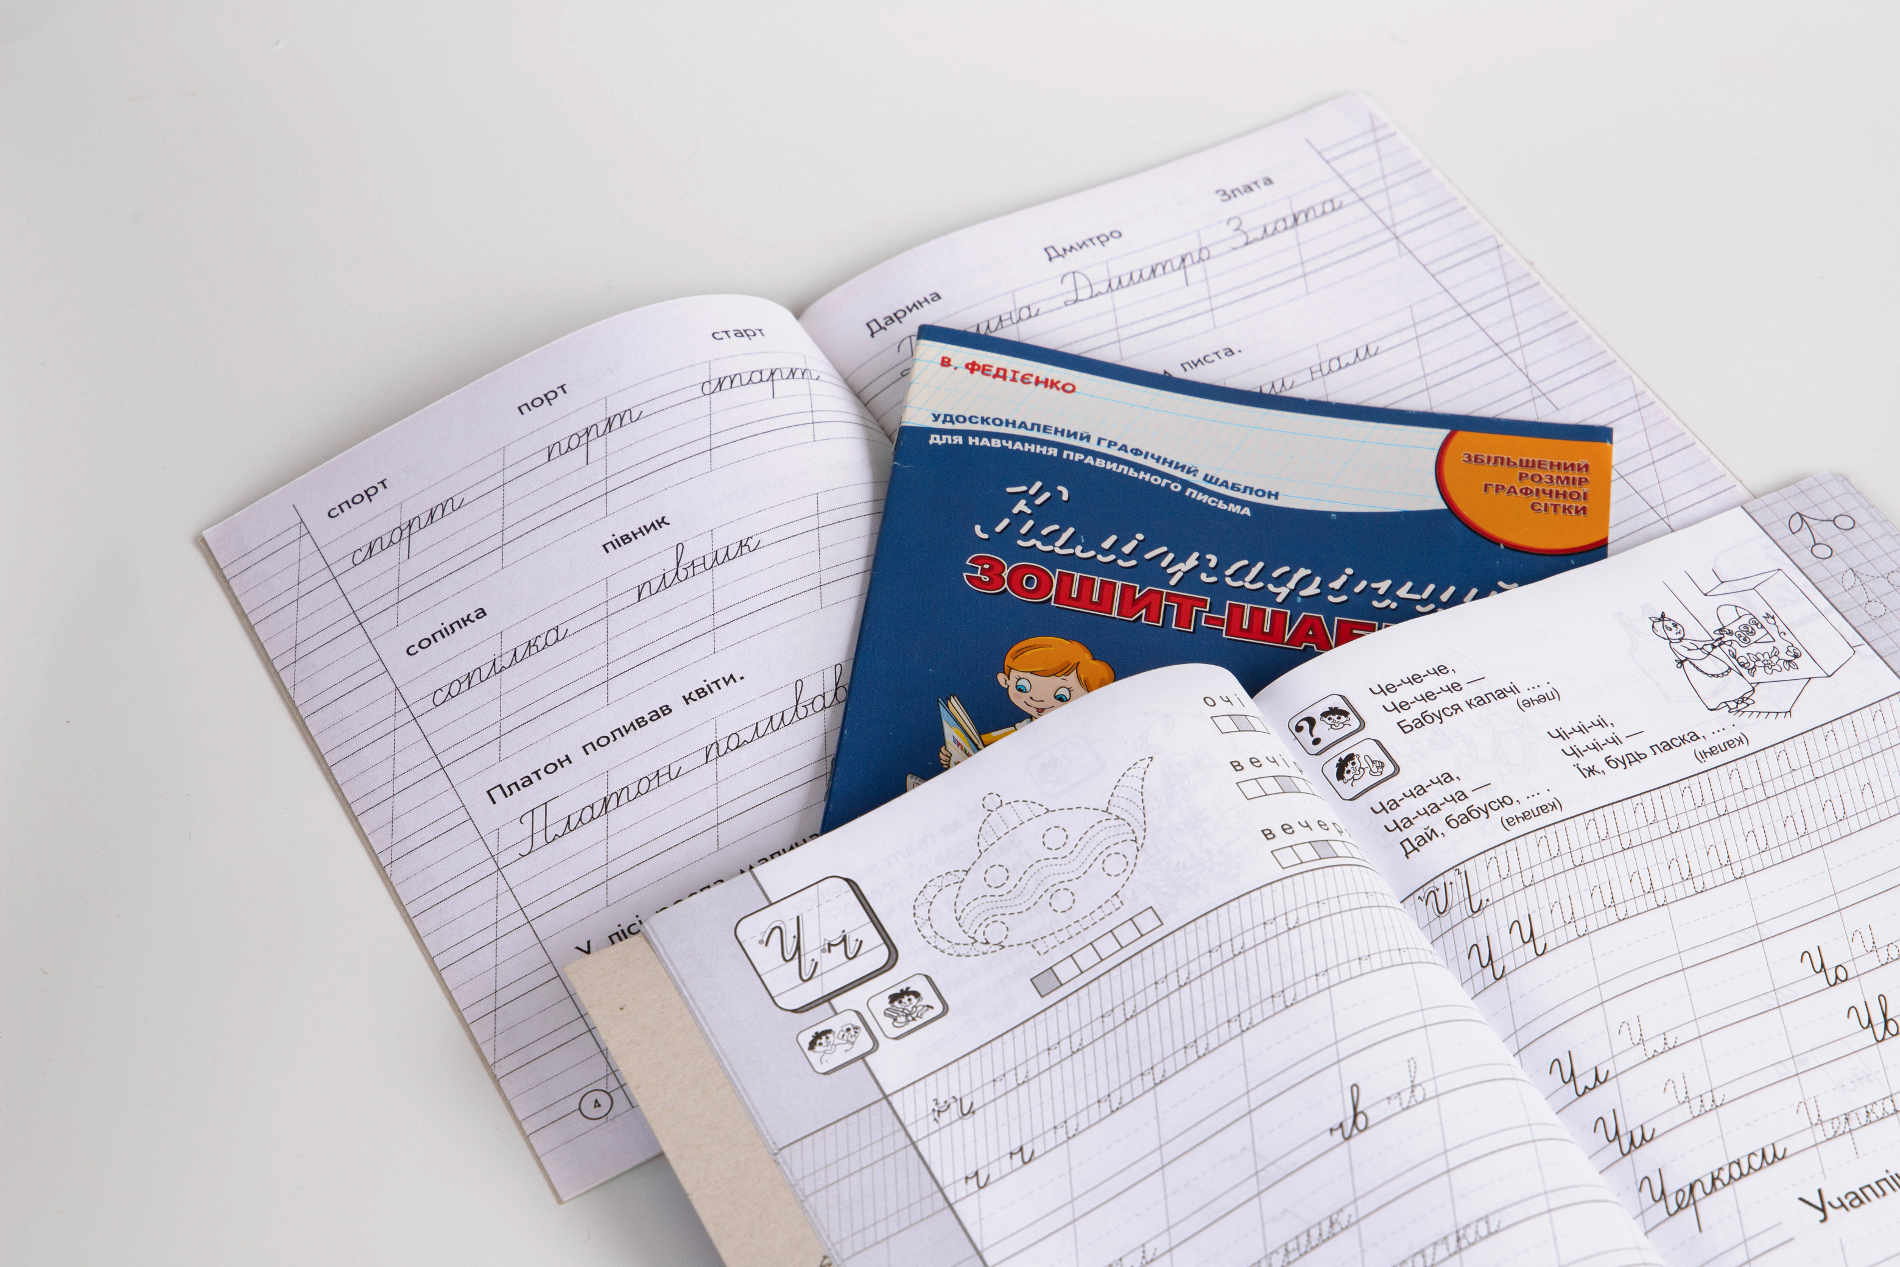 спорт порт старт
спорт порт старт
сопілка півник
сопілка півник
Платон поливав квіти.
Платон поливав
У
4
Дарина Дмитро Злата
Дмитро Злата
листа.
нам
В. ФЕДІЄНКО
УДОСКОНАЛЕНИЙ ГРАФІЧНИЙ ШАБЛОН
ДЛЯ НАВЧАННЯ ПРАВИЛЬНОГО ПИСЬМА
ЗБІЛЬШЕНИЙ
РОЗМІР
ГРАФІЧНОЇ
СІТКИ
ЗОШИТ-ШАБ
очі
вечір
вечер
Ч ч
ч ч ч ч ч ч ч
ч ч ч ч ч ч ч ч
чв чв
?
Че-че-че,
Че-че-че —
Бабуся калачі ... .
(пече)
Чі-чі-чі,
Чі-чі-чі —
Їж, будь ласка, ... .
(калачі)
Ча-ча-ча,
Ча-ча-ча —
Дай, бабусю, ... .
(калача)
Ч Ч
Чо Чо
Чл Чл Чв
Чи Чи
Черкаси Черка
Учаплі